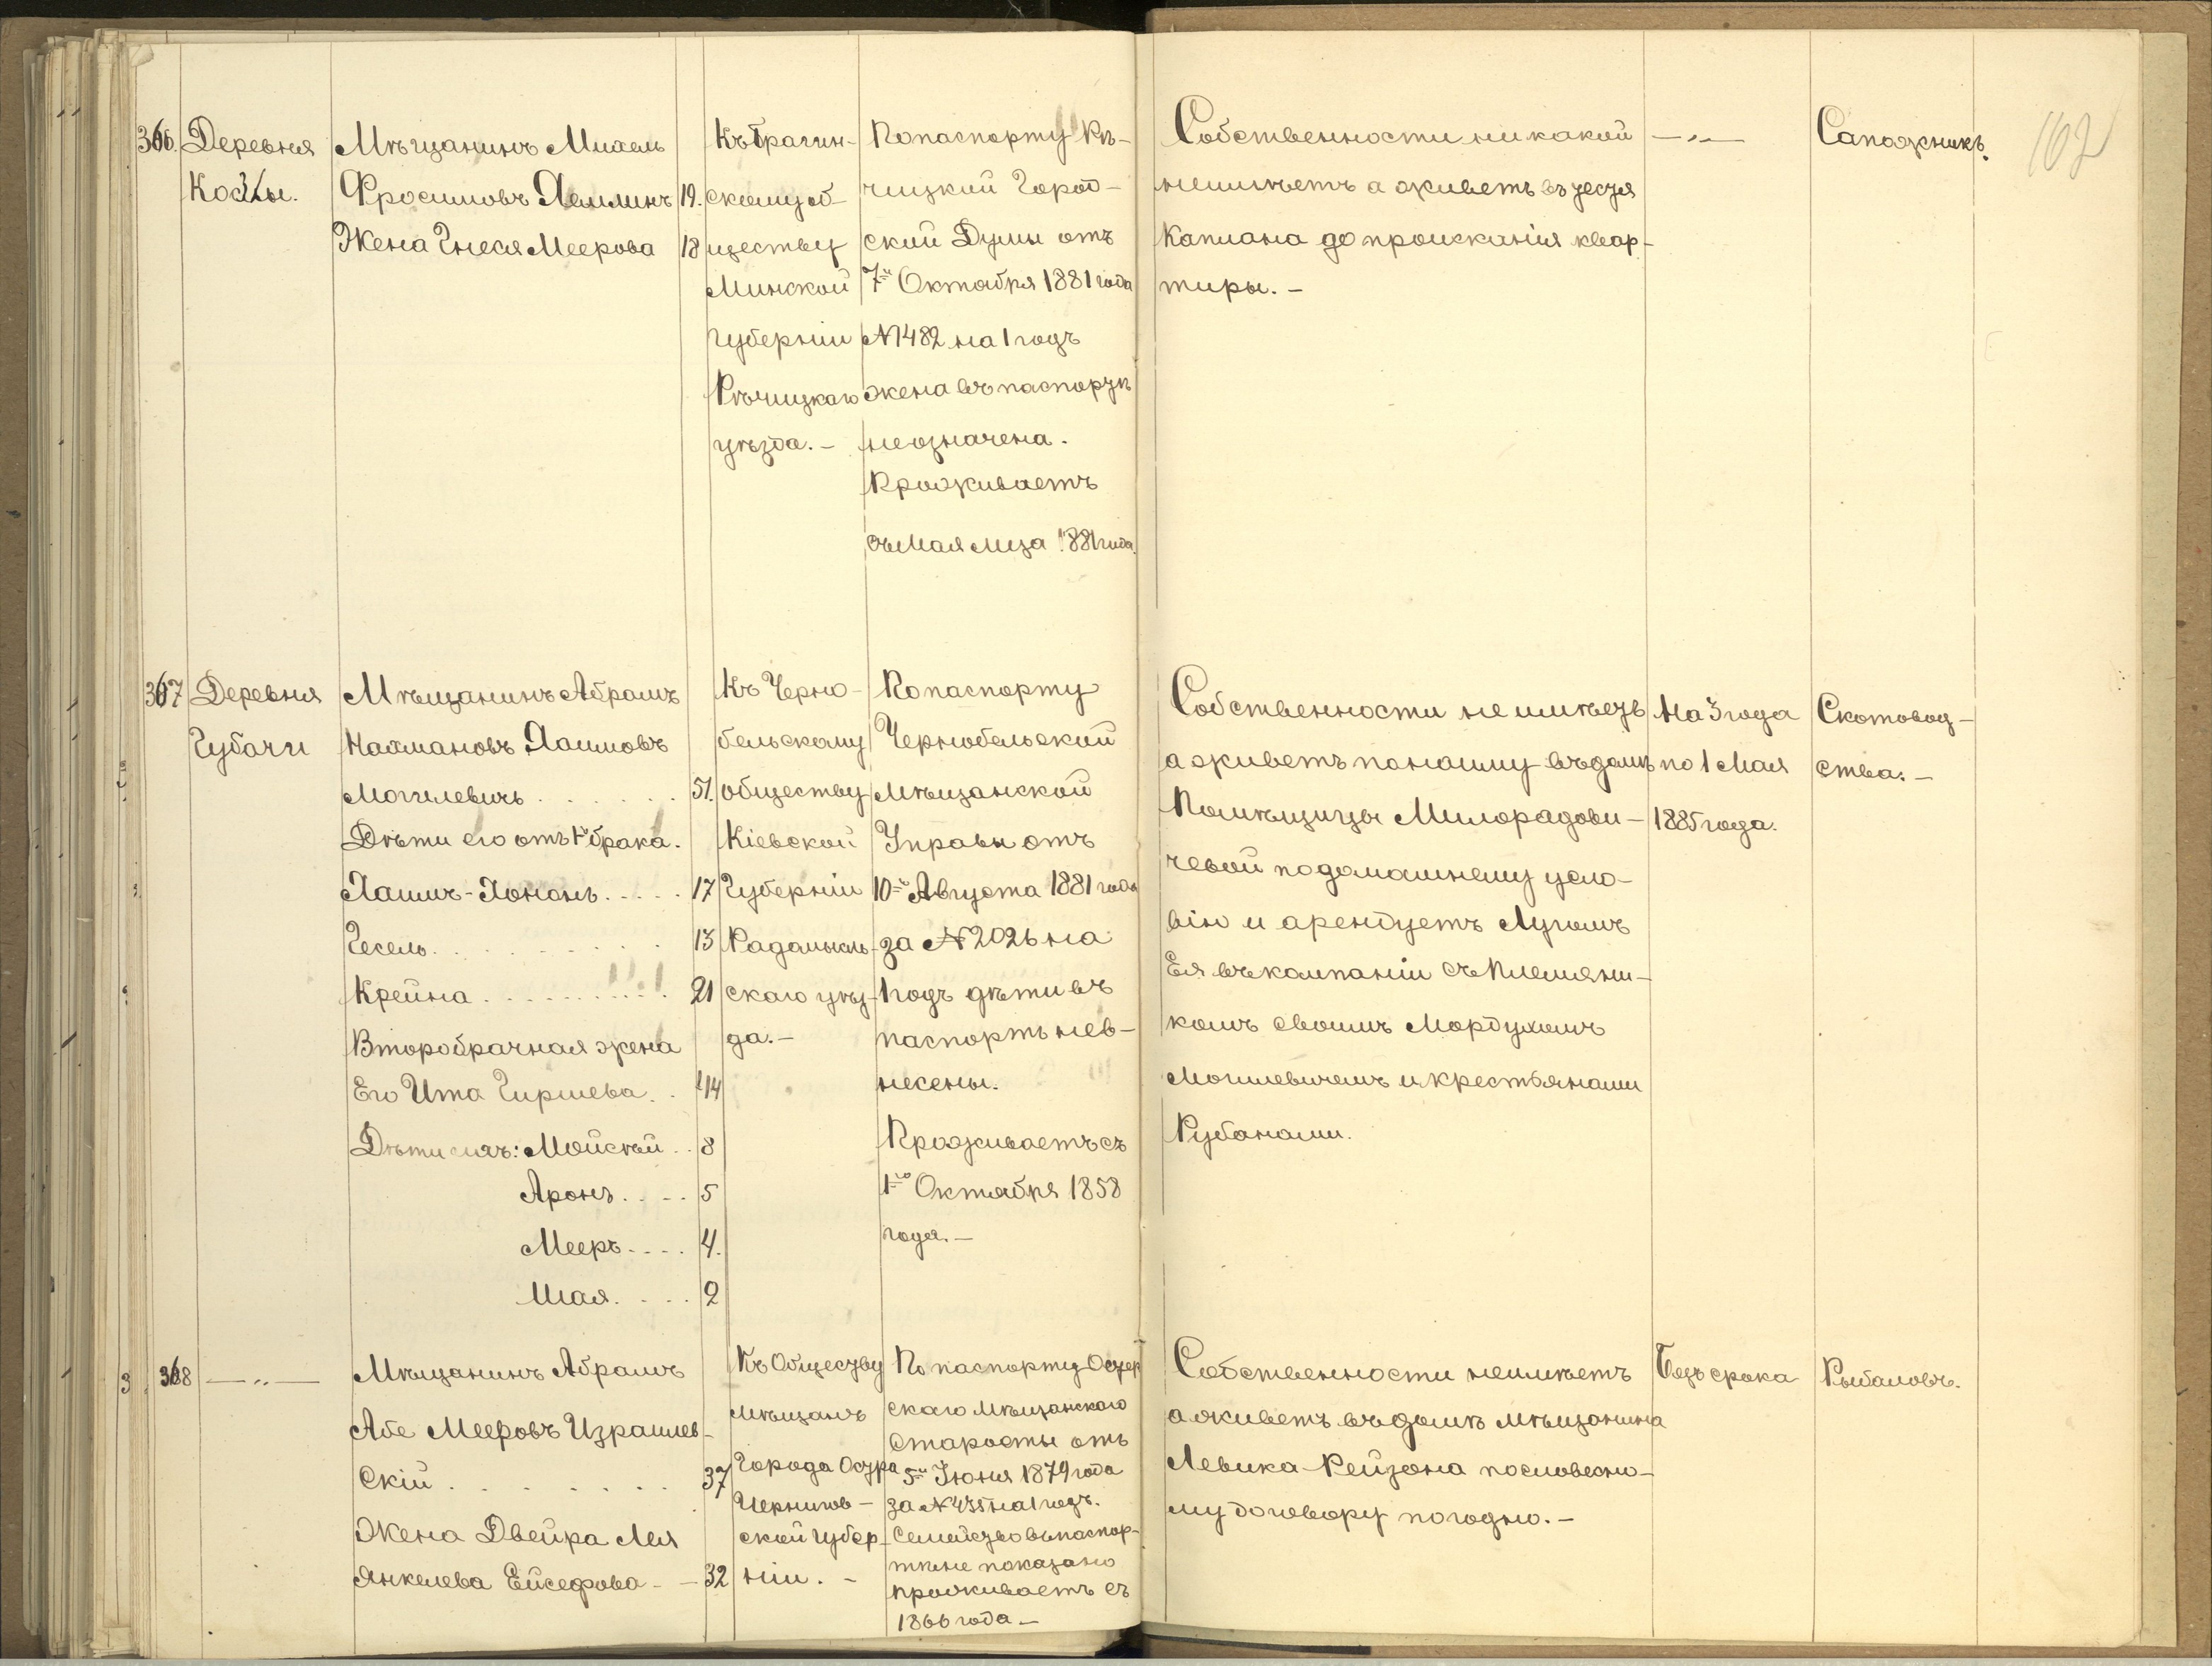 162
366. Деревня
Косчы.
Мѣщанинъ Михель
Фроимовъ
19.
Жена Гнеся Меерова 18
Къ Брагин-
скому об-
ществу
Минской
губерніи
Рѣчицкаго
уѣзда. —
По паспорту Рѣ-
чицкой Город-
ской Думы отъ
7го Октября 1881 года
№1482 на 1 годъ
жена въ паспортѣ
не означена.
Проживаетъ
съ Мая м-ца 1881 года.
Собственности никакой
неимѣетъ а живетъ въ тестя
Каплана до происканія квар-
тиры. —
— „ —
Сапожникъ.
367 Деревня
Губачи
Мѣщанинъ Абрамъ
Нахмановъ Хаимовъ
Могилевичъ . . . . . . 51.
Дѣти его отъ 1го брака.
Хаимъ-Хононъ . . . . . 17
Гесель . . . . . . . . . 13
Крейна . . . . . . . . . . 21
Второбрачная жена
Его Ита Гиршева . . 44
Дѣти ихъ: Мойсѣй . . 8
Аронъ . . . . 5
Мееръ . . . . 4.
Шая . . . . 2
Къ Черно-
бельскому
обществу
Кіевской
Губерніи
Радамысль-
скаго уѣз-
да. —
По паспорту
Чернобельской
Мѣщанской
Управы отъ
10го Августа 1881 года
за №2026 на
1 годъ дѣти въ
паспортъ нев-
несены.
Проживаетъ съ
1го Октября 1858
года. —
Собственности не имѣетъ
а живетъ по найму въ домѣ
Помѣщицы Милорадови-
чевой по домашнему усло-
вію и арендуетъ Лугомъ
Ея въ компаніи съ Племянни-
комъ своимъ Мордухомъ
Могилевичемъ и крестьянами
Рубанами.
На 3 года
по 1 Мая
1885 года.
Скотовод-
ства. —
368 — „ —
Мѣщанинъ Абрамъ
Абе Мееровъ Израилев-
скій . . . . . . . . 37
Жена Двейра Лея
Янкелева Ейсефова — — 32
Къ Обществу
Мѣщанъ
Города Остра
Чернигов-
ской Губер-
ніи. —
По паспорту Остер
скаго Мѣщанскаго
Старосты отъ
5го Іюня 1879 года
за №435 на 1 годъ.
Семейство въ паспор-
тѣ не показано
проживаетъ съ
1866 года —
Собственности неимѣетъ
а живетъ въ домѣ мѣщанина
Левика-Рейзона по словесно-
му договору погодно. —
Безъ срока
Рыбаловъ.